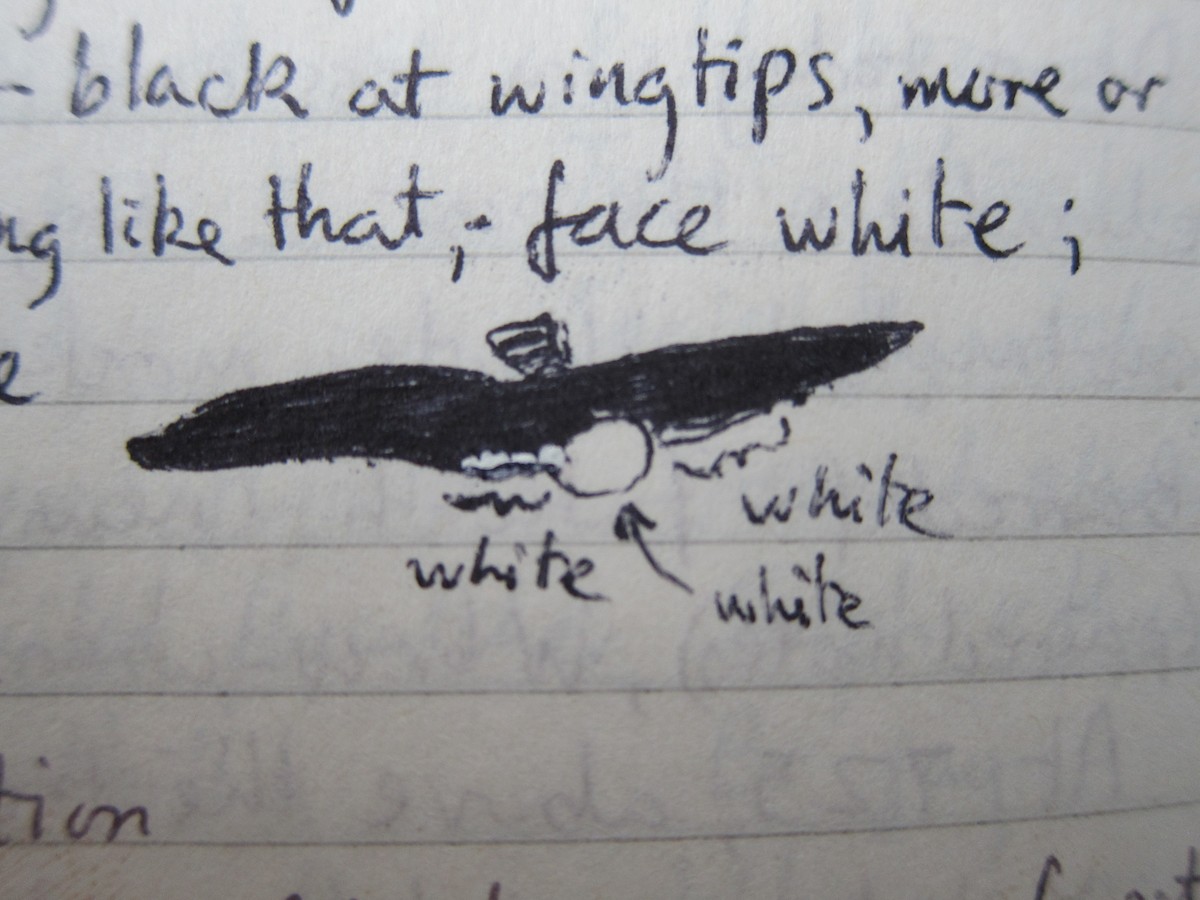 - black at wingtips, more or
ng like that,- face white ;
e
white
white
white
tion